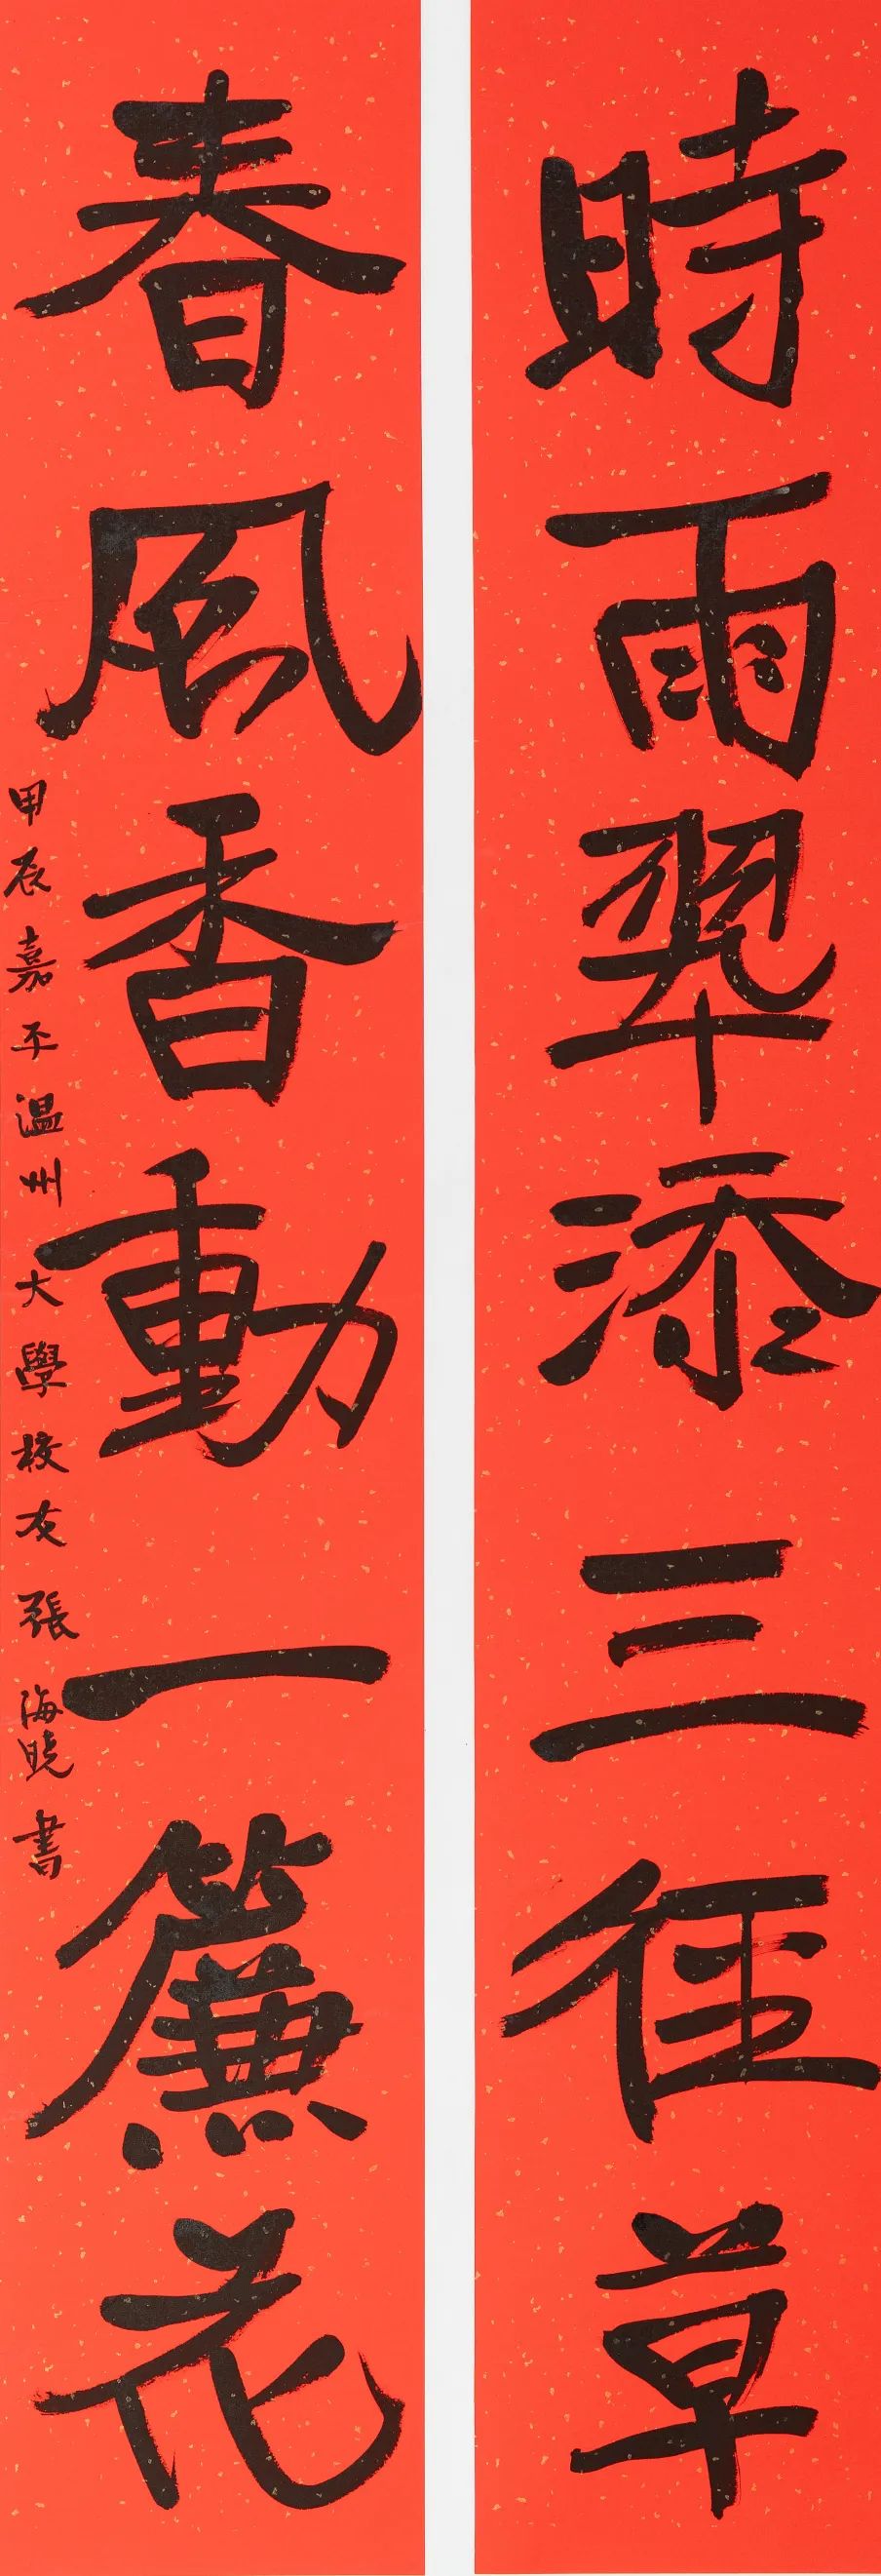 時雨翠添三徑草
春風香動一簾花
甲辰嘉平温州大學校友張海晓書